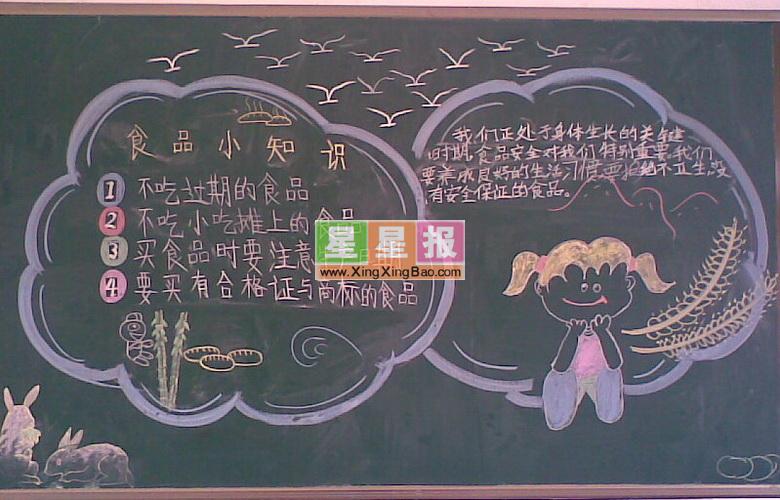 食品小知识
1 不吃过期的食品
2 不吃小吃摊上的食品
3 买食品时要注意
4 要买有合格证与商标的食品
我们正处于身体生长的关键
时期,食品安全对我们特别重要,我们
要养成良好的生活习惯,要拒绝不卫生,没
有安全保证的食品。
星星报
www.XingXingBao.com